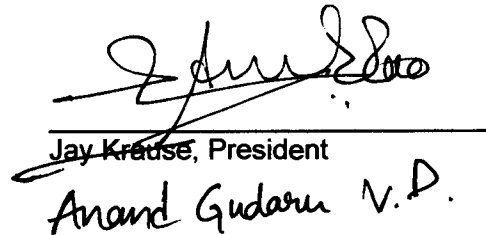 Jay Krause, President
Anand Gudaru V.P.